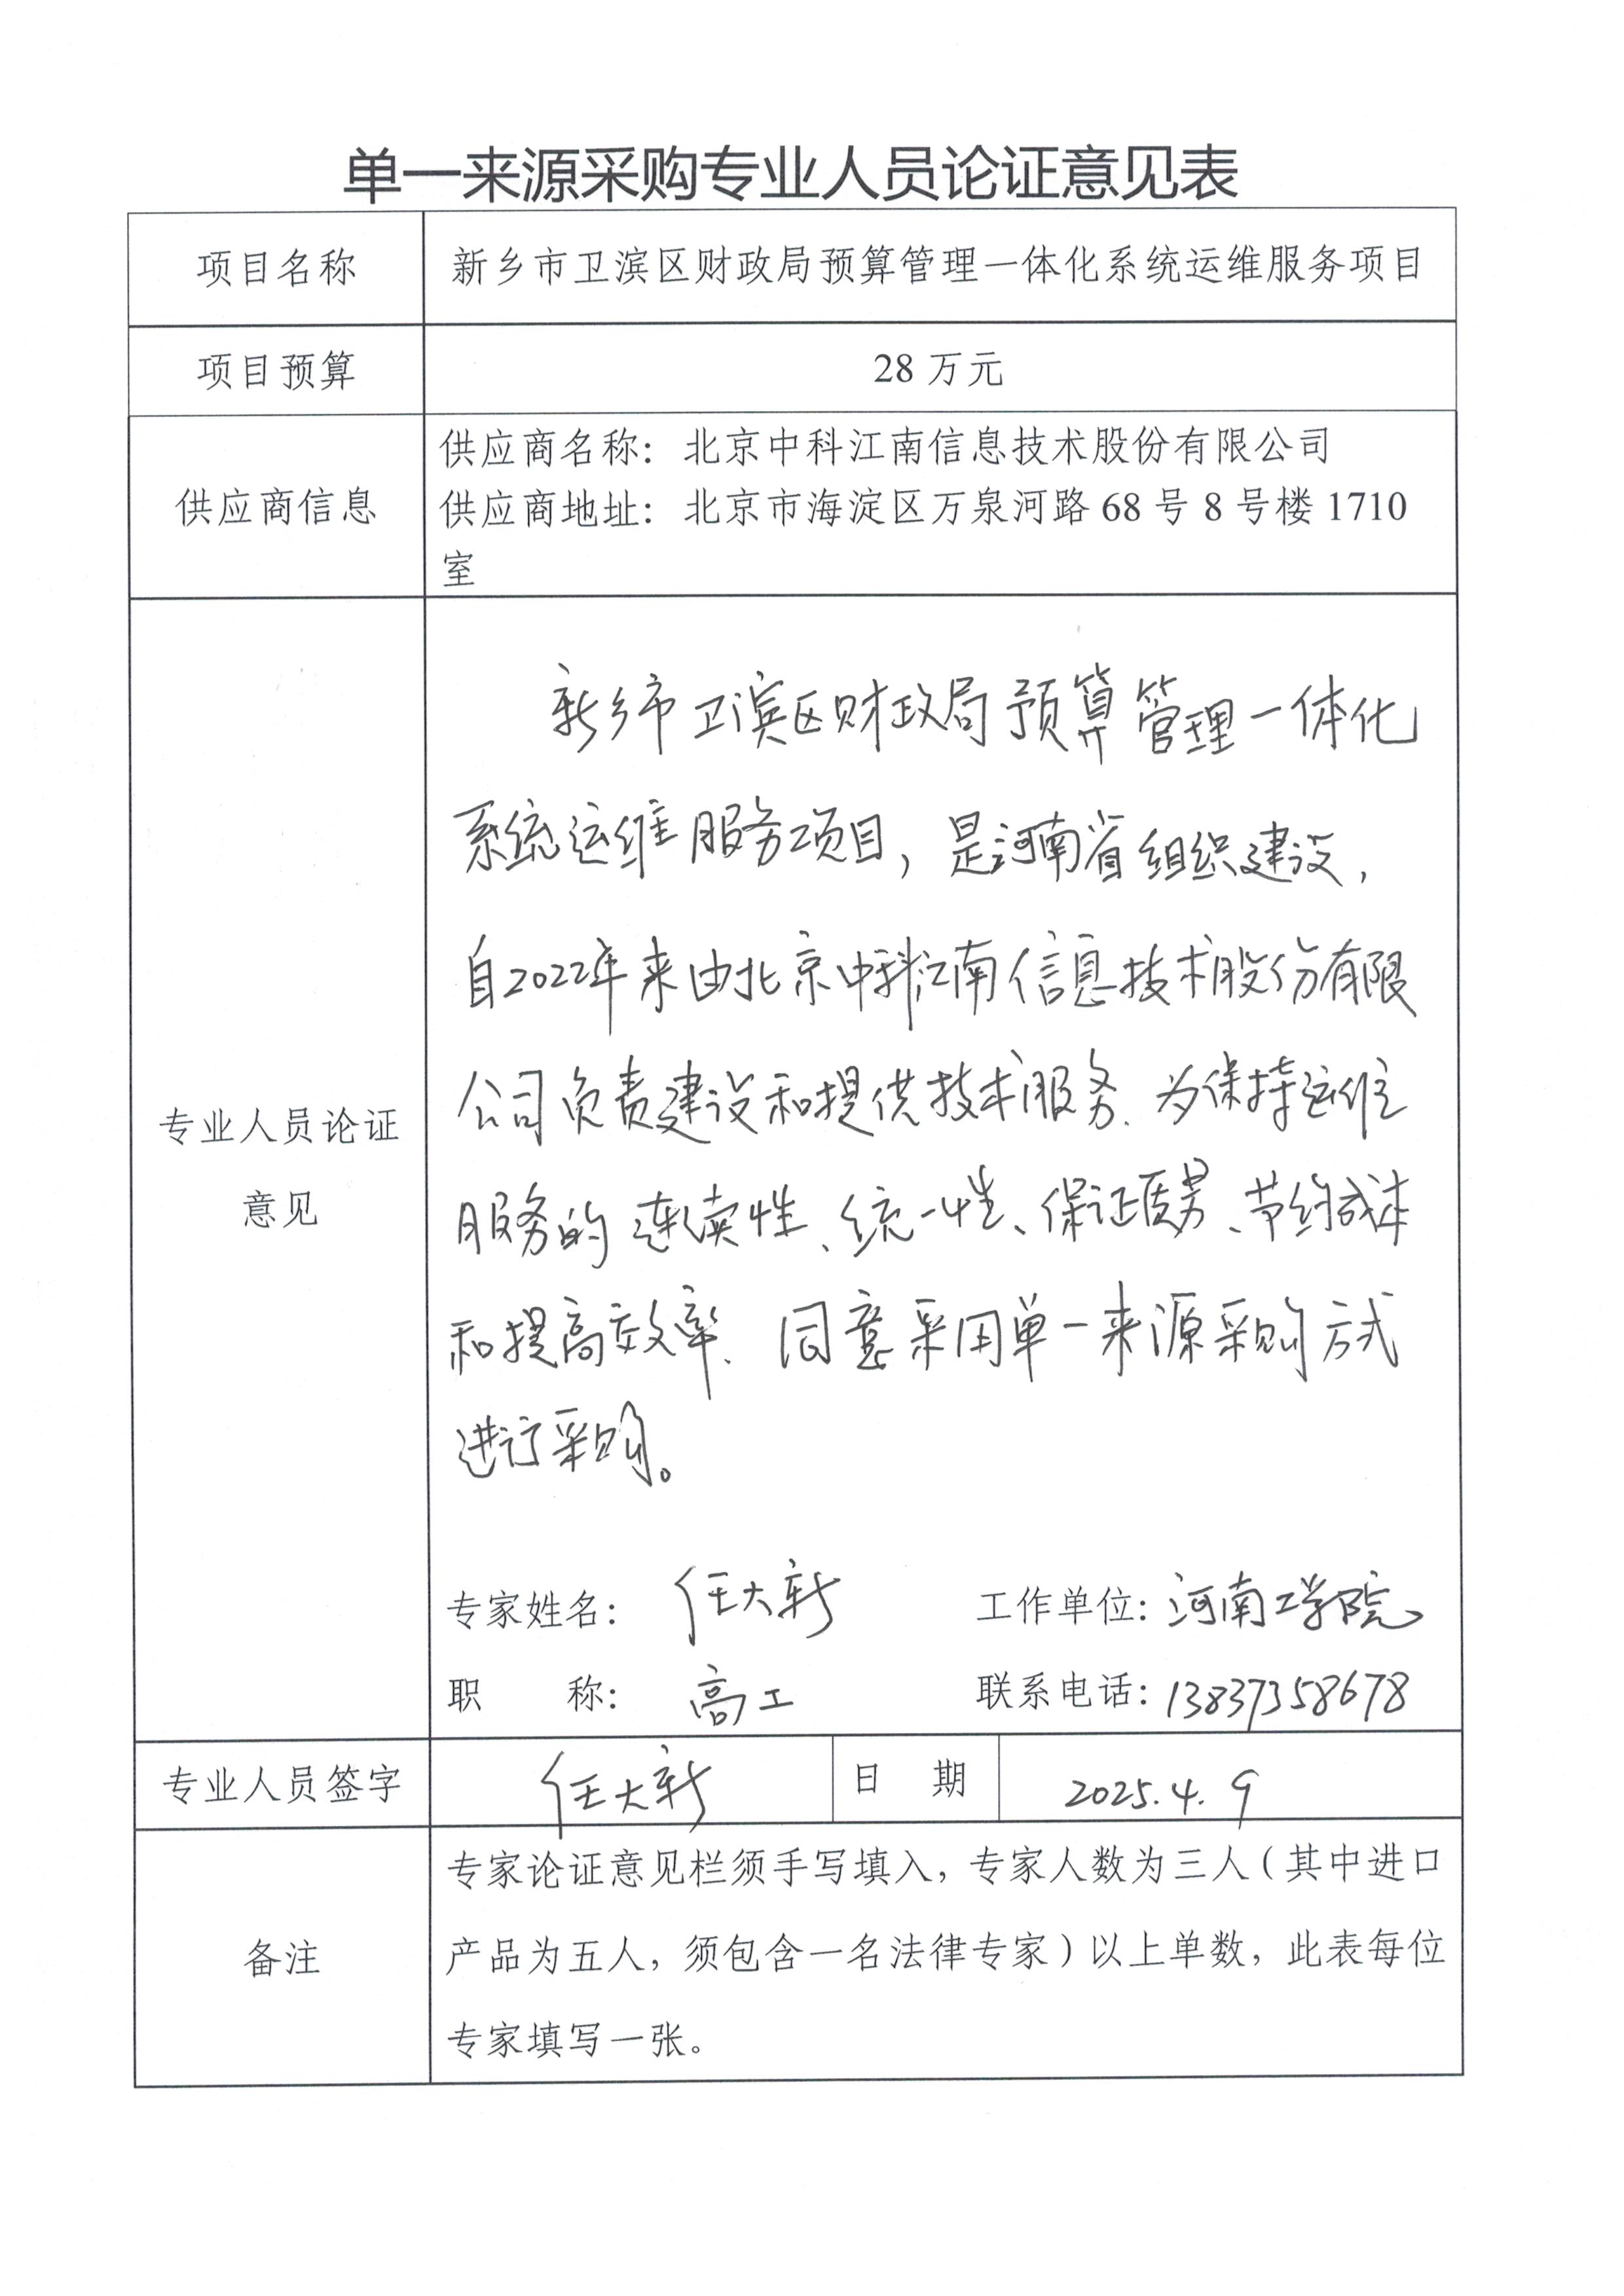 单一来源采购专业人员论证意见表
项目名称
新乡市卫滨区财政局预算管理一体化系统运维服务项目
项目预算
28 万元
供应商信息
供应商名称：北京中科江南信息技术股份有限公司
供应商地址：北京市海淀区万泉河路 68 号 8 号楼 1710
室
专业人员论证
意见
新乡市卫滨区财政局预算管理一体化
系统运维服务项目，是河南省组织建设，
自2022年来由北京中科江南信息技术股份有限
公司负责建设和提供技术服务.为保持运维
服务的连续性、统一性、保证质量、节约成本
和提高效率、同意采用单一来源采购方式
进行采购。
专家姓名： 任大新 工作单位：河南工学院
职 称： 高工 联系电话：13837358678
专业人员签字
任大新
日 期
2025.4.9
备注
专家论证意见栏须手写填入，专家人数为三人（其中进口
产品为五人，须包含一名法律专家）以上单数，此表每位
专家填写一张。